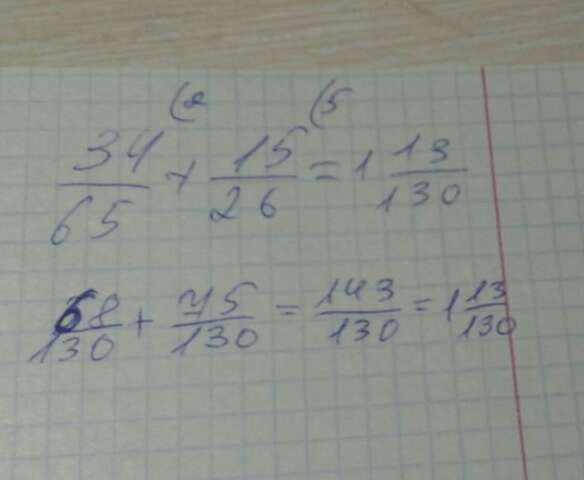 (2 (5
34/65 + 15/26 = 1 13/130
68/130 + 75/130 = 143/130 = 1 13/130